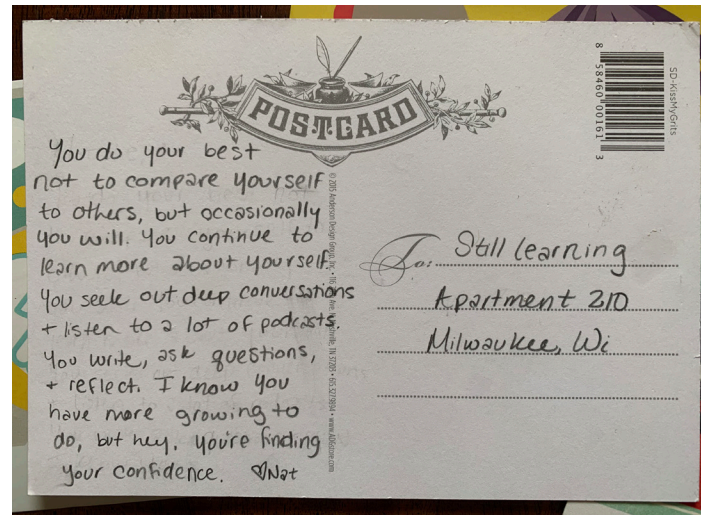 POSTCARD
You do your best
not to compare yourself
to others, but occasionally
you will. You continue to
learn more about yourself.
You seek out deep conversations
+ listen to a lot of podcasts.
You write, ask questions,
+ reflect. I know you
have more growing to
do, but hey, you're finding
your confidence. ♡Nat
© 2015 Anderson Design Group, Inc. • 116 Ave. Nashville, TN 37205 • 615.327.9894 • www.ADGstore.com
To: Still learning
Apartment 210
Milwaukee, Wi
SD-KissMyGrits
8 58460 00161 3